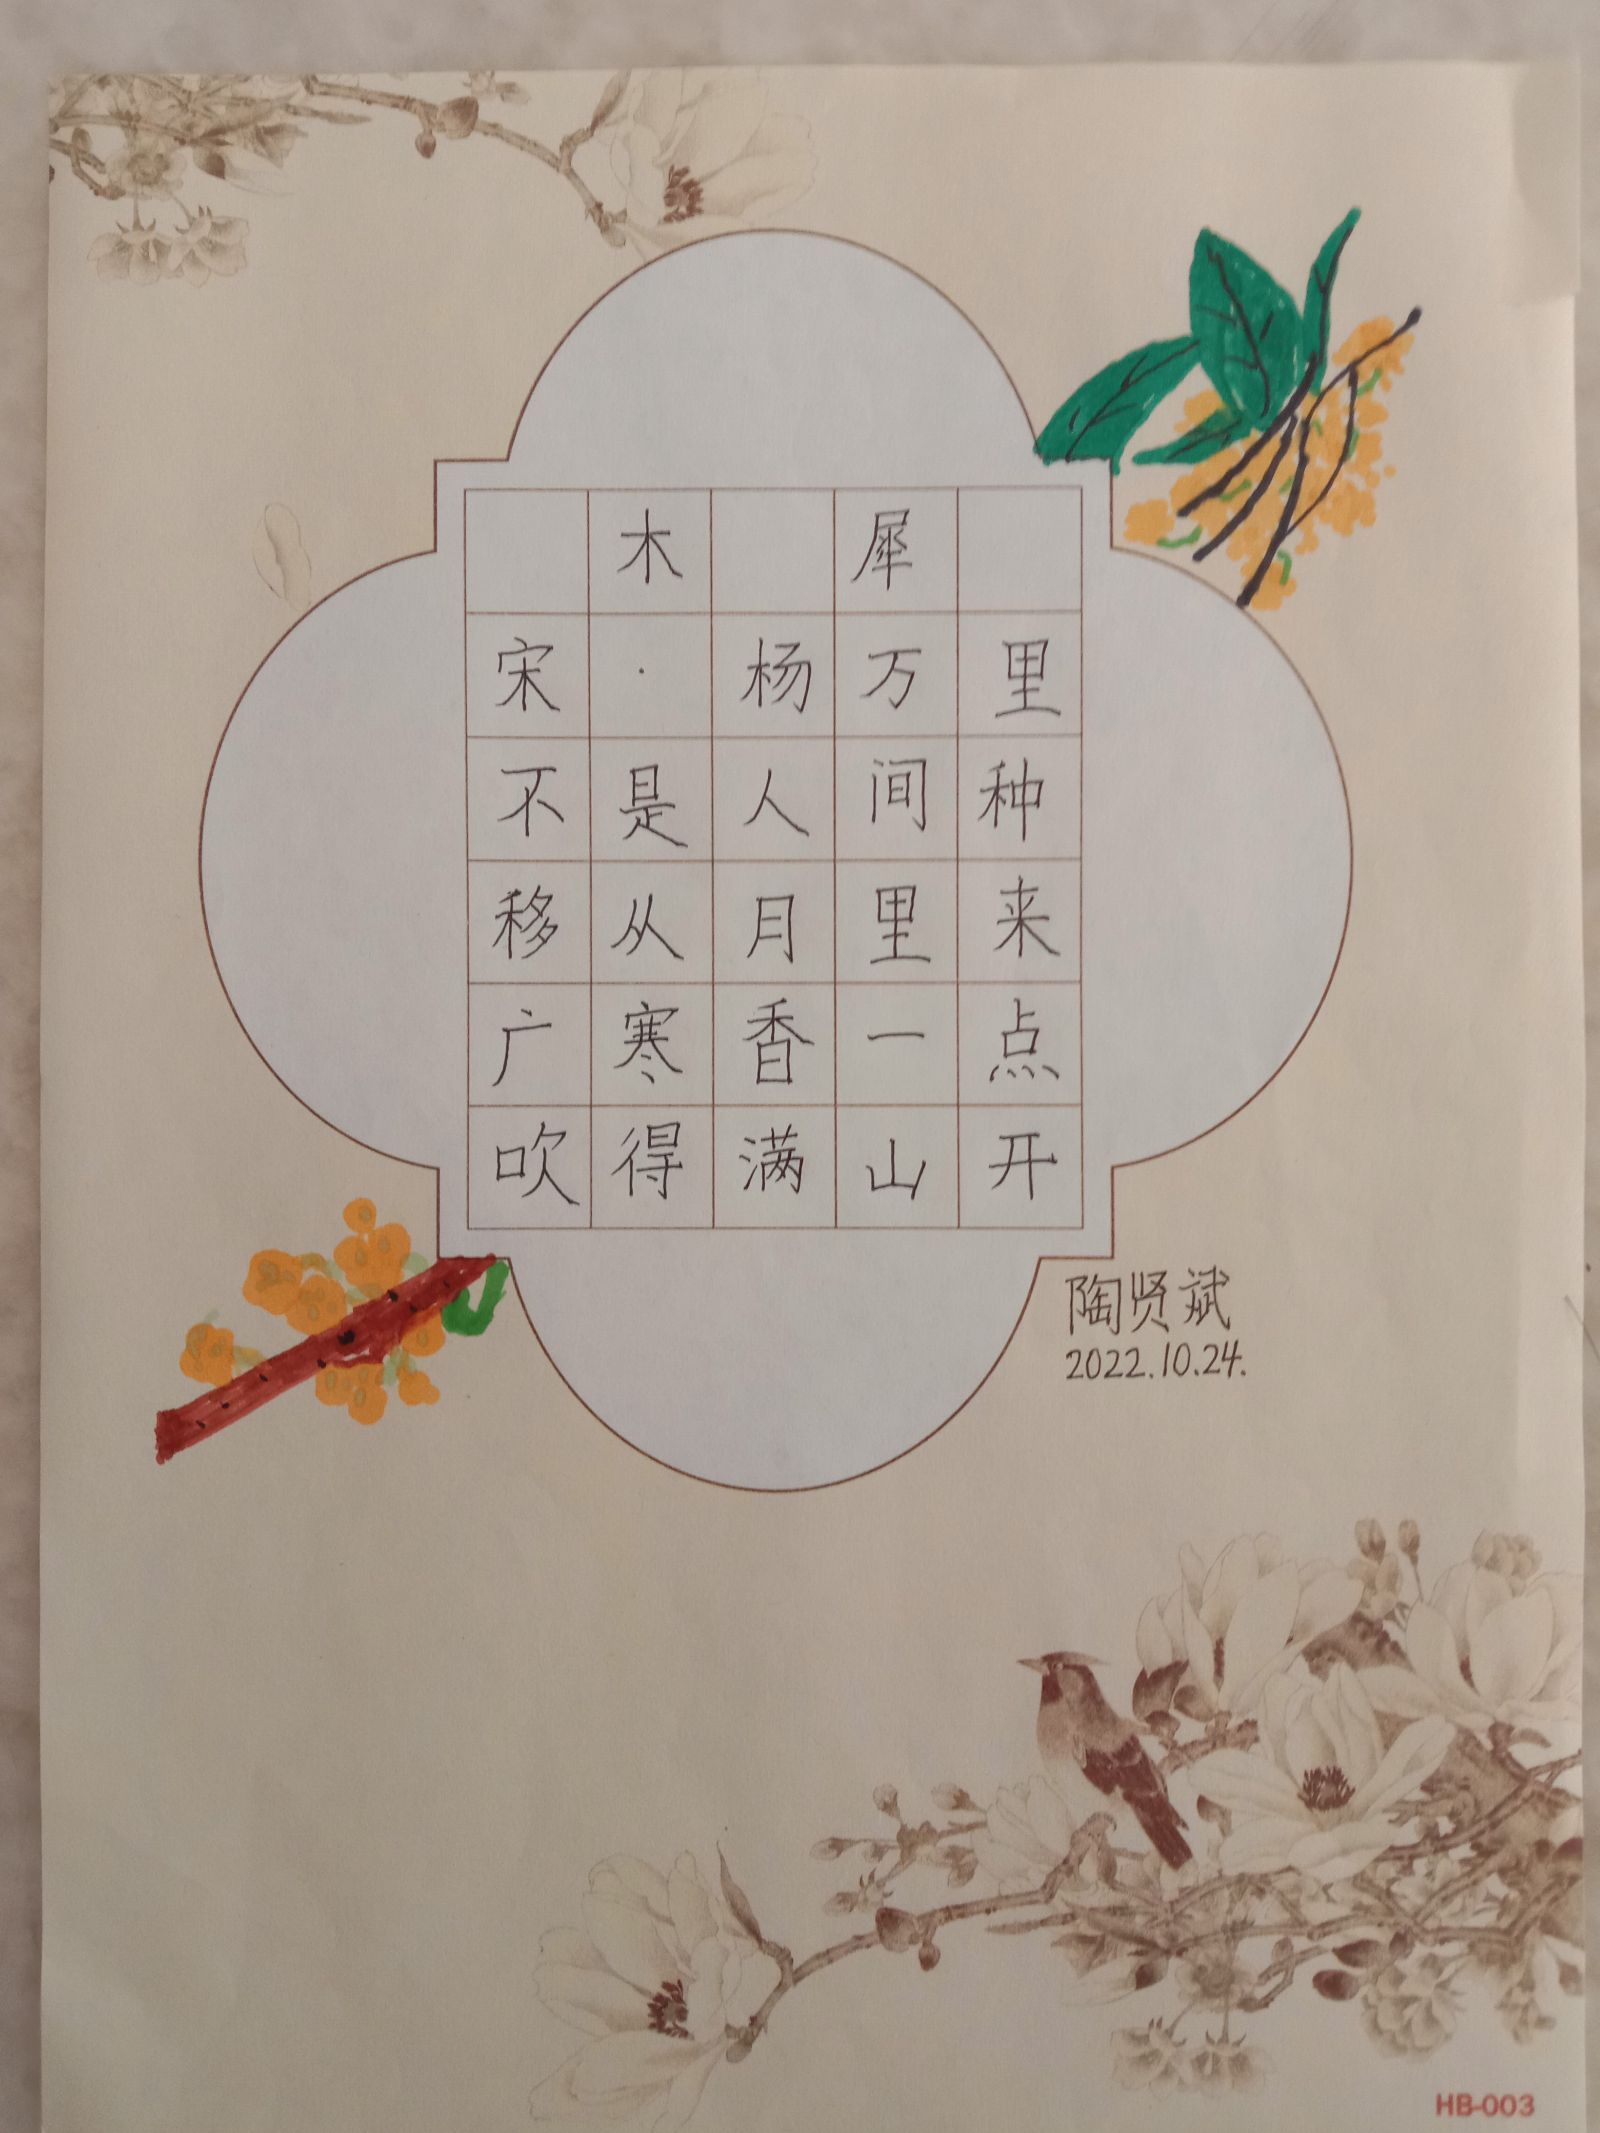 木犀
宋·杨万里
不是人间种
移从月里来
广寒香一点
吹得满山开
陶贤斌
2022.10.24.
HB-003